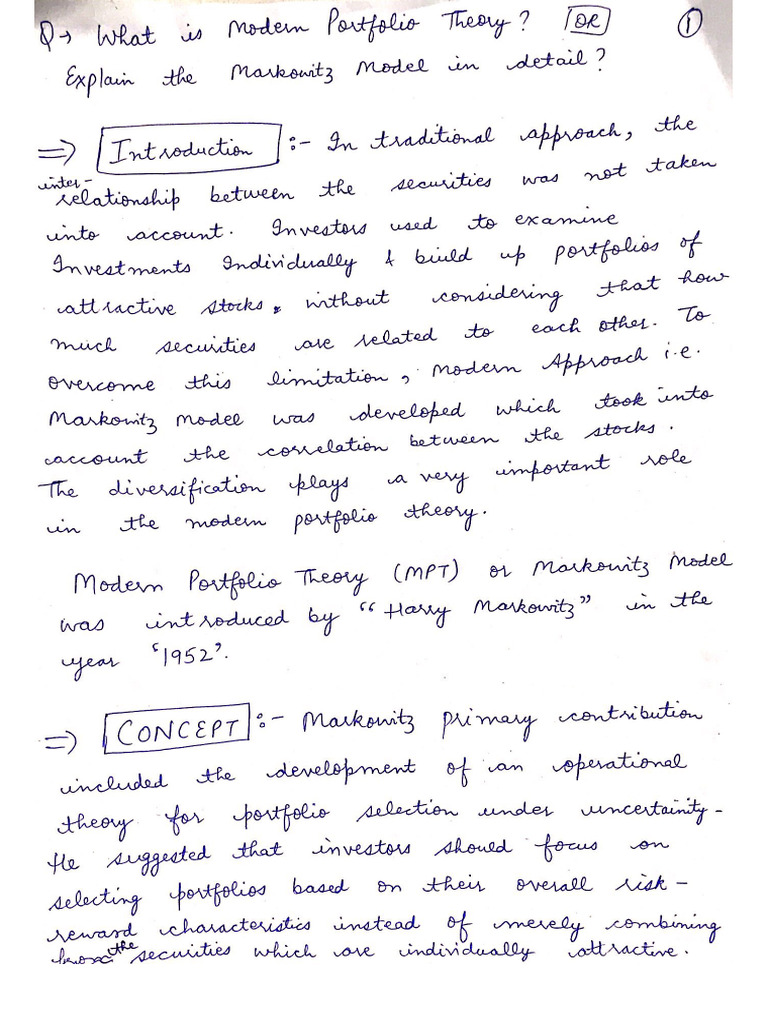 Q→ What is Modern Portfolio Theory? OR ①
Explain the Markowitz Model in detail?
⇒ Introduction :- In traditional approach, the
inter-
relationship between the securities was not taken
into account. Investors used to examine
Investments Individually & build up portfolios of
attractive stocks, without considering that how
much securities are related to each other. To
overcome this limitation, Modern Approach i.e.
Markowitz Model was developed which took into
account the correlation between the stocks.
The diversification plays a very important role
in the modern portfolio theory.
Modern Portfolio Theory (MPT) or Markowitz Model
was introduced by "Harry Markowitz" in the
year '1952'.
⇒ CONCEPT :- Markowitz primary contribution
included the development of an operational
theory for portfolio selection under uncertainity-
He suggested that investors should focus on
selecting portfolios based on their overall risk-
reward characteristics instead of merely combining
the securities which are individually attractive.